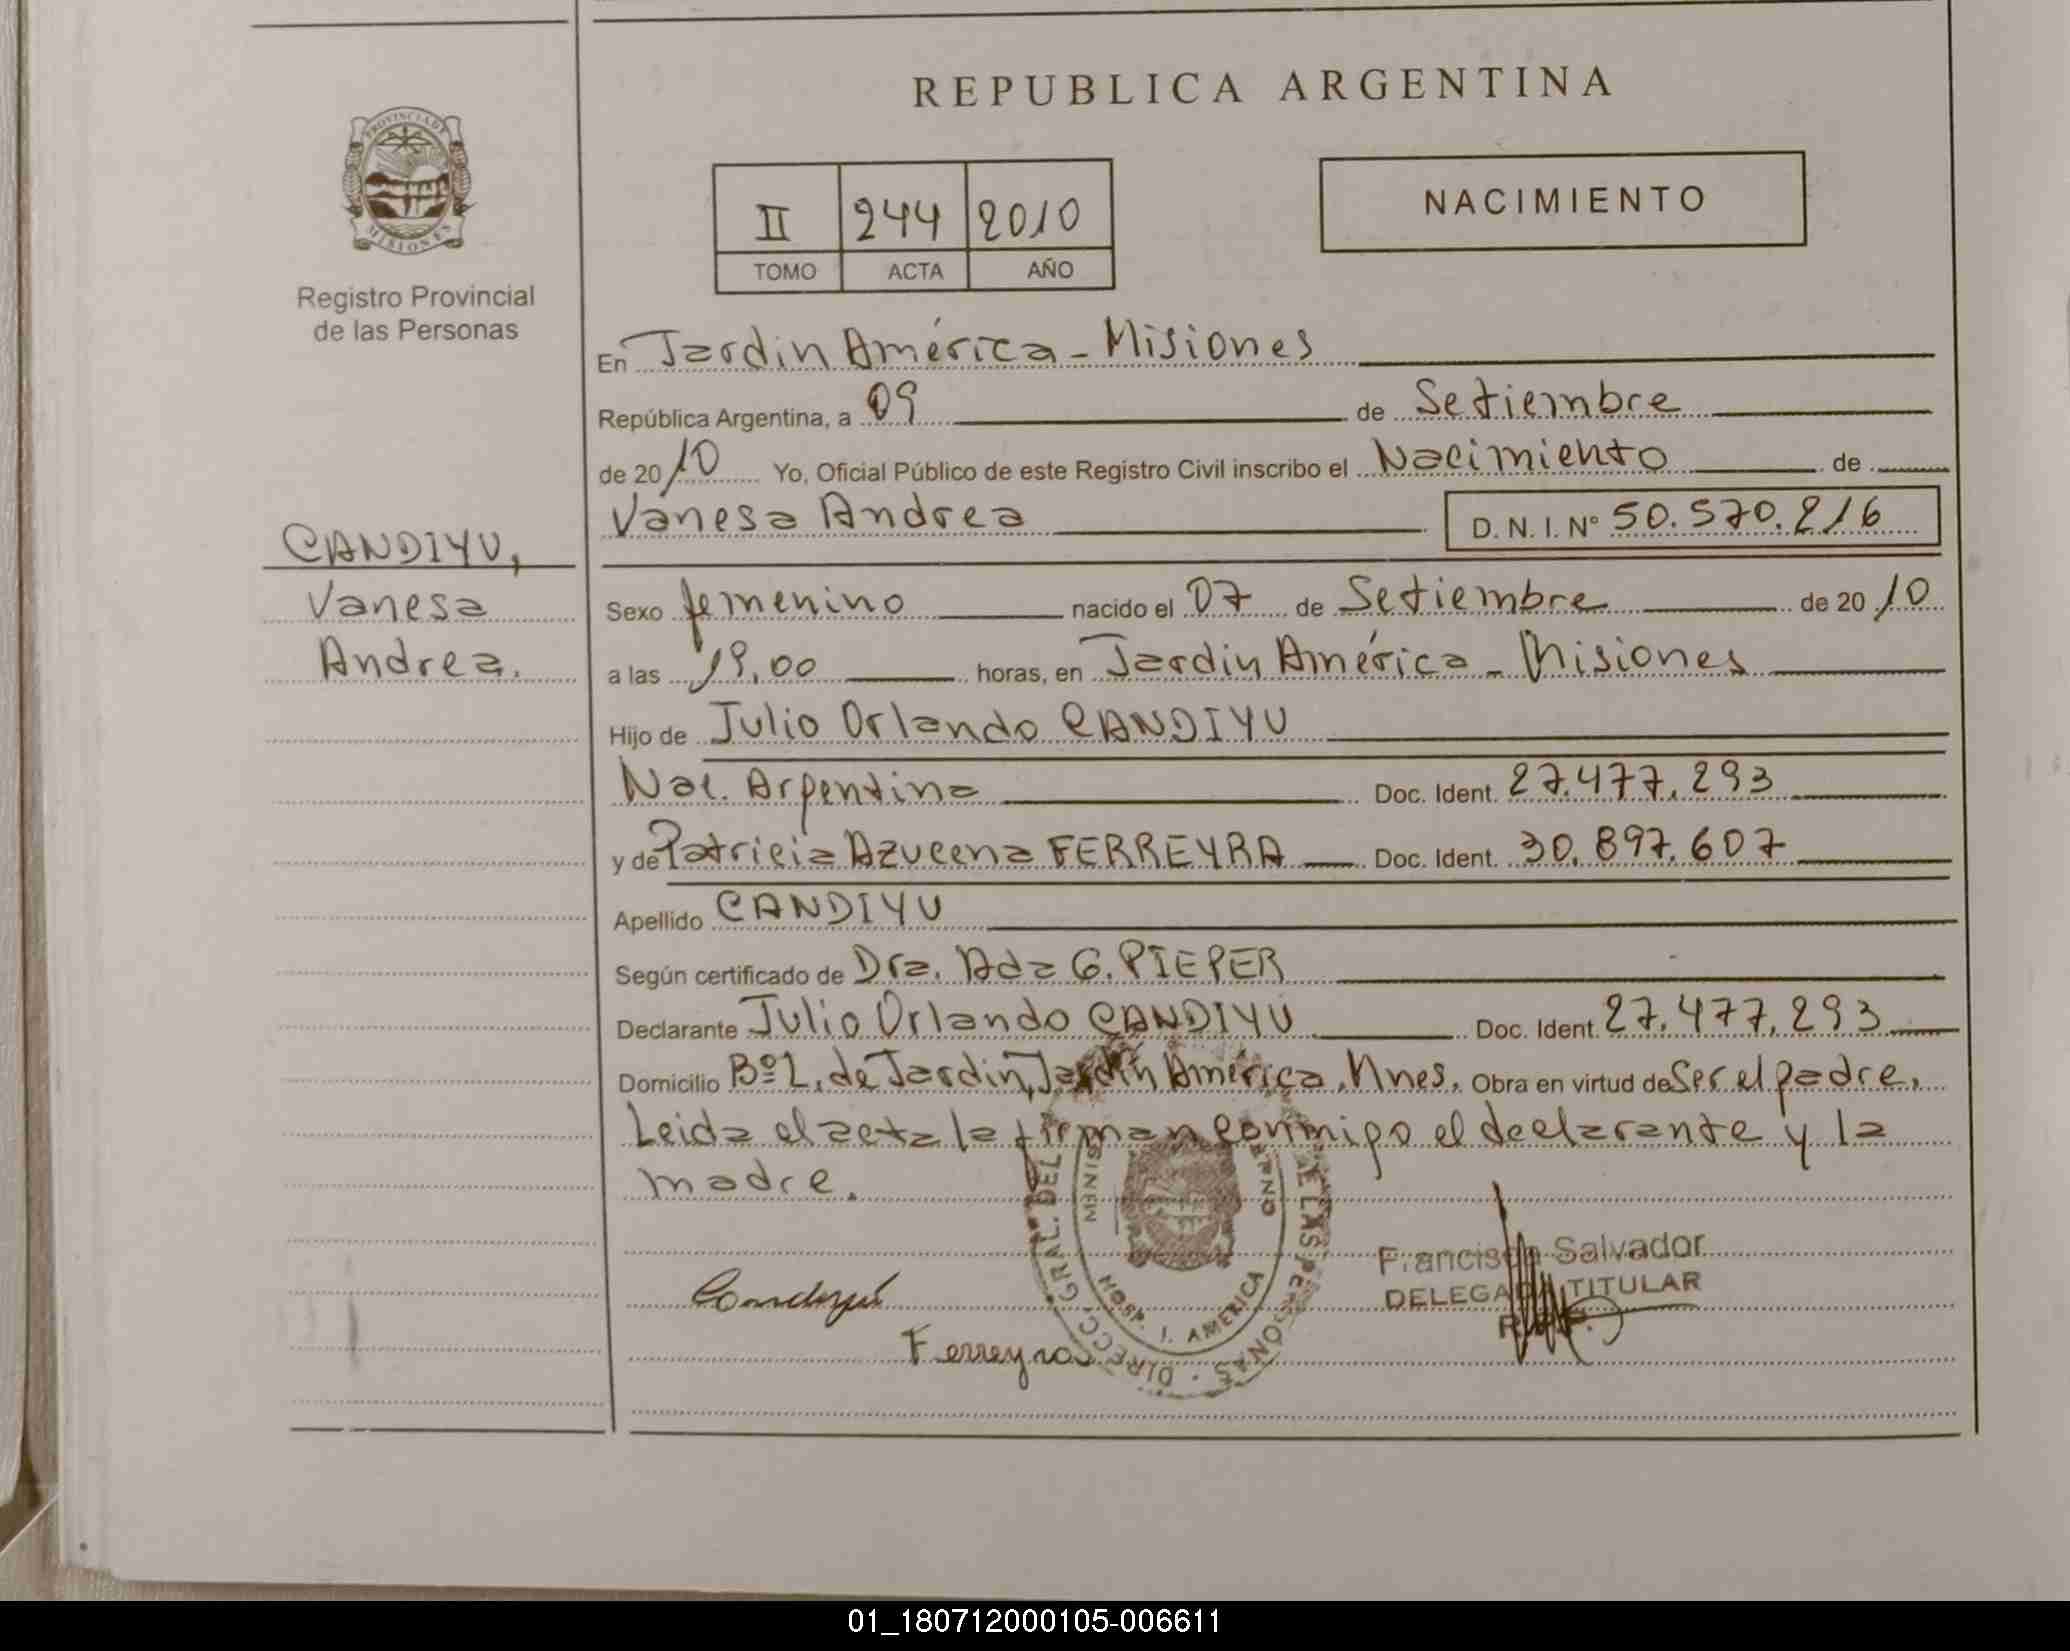 REPUBLICA ARGENTINA
PROVINCIA DE
MISIONES
Registro Provincial
de las Personas
II 244 2010
TOMO ACTA AÑO
NACIMIENTO
En Jardin América - Misiones
República Argentina, a 09 de Setiembre
de 20 10 Yo, Oficial Público de este Registro Civil inscribo el Nacimiento de
Vanesa Andrea D. N. I. Nº 50.570.216
CANDIYU,
Vanesa
Andrea.
Sexo femenino nacido el 07 de Setiembre de 20 10
a las 19,00 horas, en Jardin América - Misiones
Hijo de Julio Orlando CANDIYU
Nac. Argentina Doc. Ident. 27.477.293
y de Patricia Azucena FERREYRA Doc. Ident. 30.897.607
Apellido CANDIYU
Según certificado de Dra. Ada G. PIEPER
Declarante Julio Orlando CANDIYU Doc. Ident. 27.477.293
Domicilio Bº L. de Jardin, Jardín América, Mnes. Obra en virtud de Ser el padre.
Leida el acta la firman conmigo el declarante y la
madre.
DIRECC. GRAL. DEL DE LAS PERSONAS
HOSP. J. AMERICA
Francisco Salvador
DELEGADO TITULAR
Candiyú
Ferreyra
01_180712000105-006611